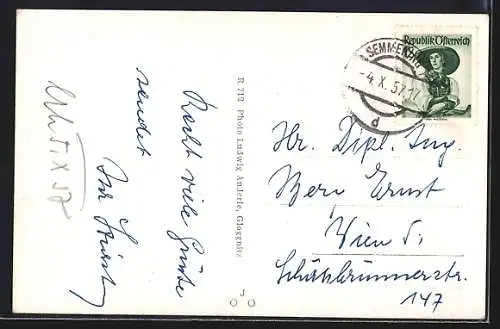 Recht viele Grüße
sendet
Ihr
R 712 Photo Ludwig Anderle, Gloggnitz
3
Republik Österreich
SEMMERING
-4.X.57-17
d
Hr. Dipl. Ing.
Ernst
Wien 5.
Schönbrunnerstr.
147